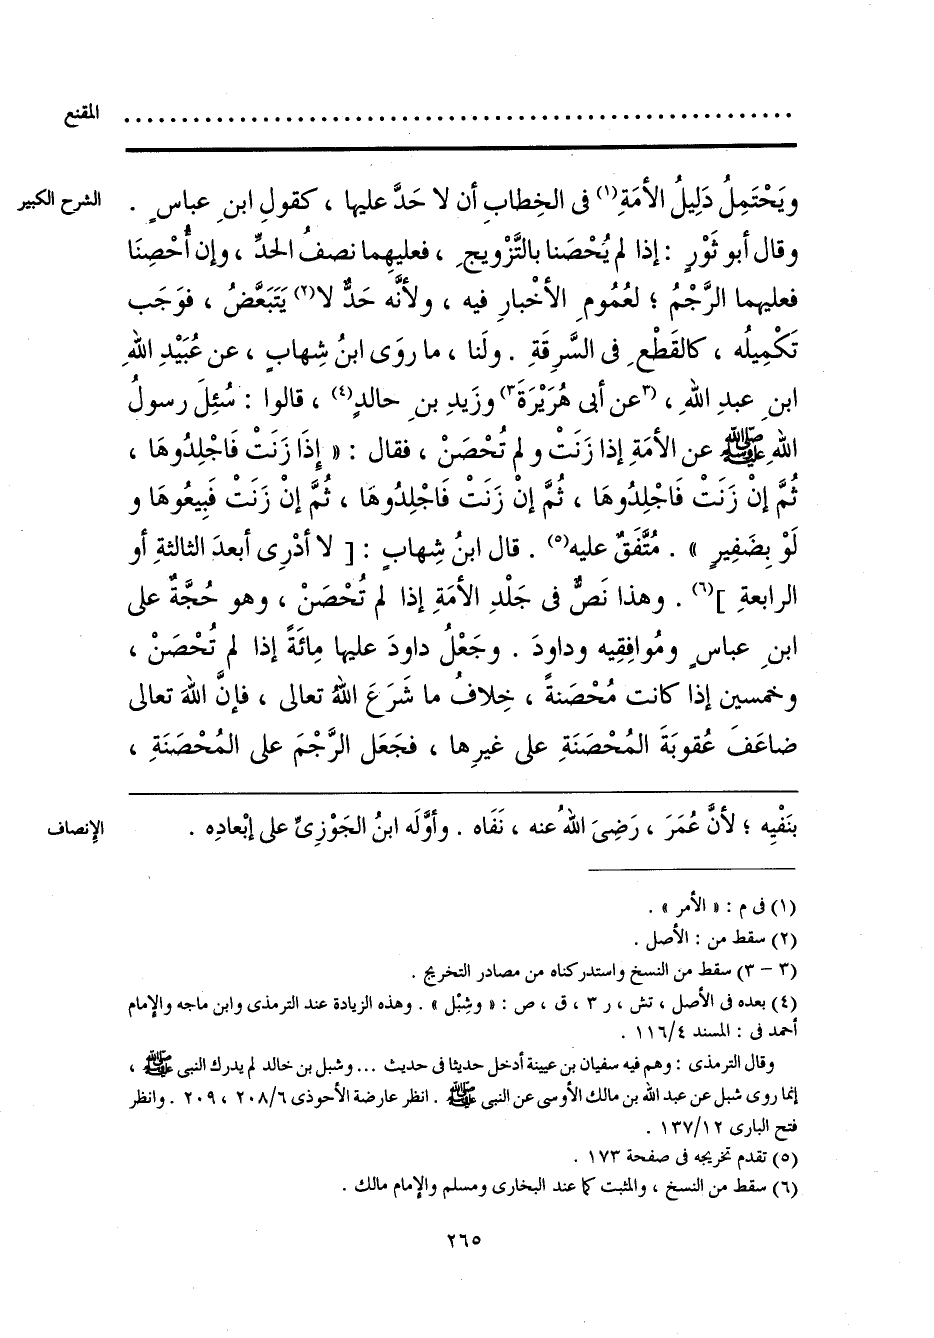 المقنع ..........................................................
الشرح الكبير
ويَحْتَمِلُ دَلِيلُ الأمَةِ(١) فى الخِطابِ أن لا حَدَّ عليها ، كقولِ ابنِ عباسٍ .
وقال أبو ثَوْرٍ : إذا لم يُحْصَنا بالتَّزْويجِ ، فعليهما نصفُ الحدِّ ، وإن أُحْصِنَا
فعليهما الرَّجْمُ ؛ لعُمُومِ الأخْبارِ فيه ، ولأنَّه حَدٌّ لا(٢) يَتَبَعَّضُ ، فوَجَب
تَكْمِيلُه ، كالقَطْعِ فى السَّرِقَةِ . ولَنا ، ما روَى ابنُ شِهابٍ ، عن عُبَيْدِ اللهِ
ابنِ عبدِ اللهِ ، (٣عن أبى هُرَيْرَةَ٣) وزَيدِ بنِ خالدٍ(٤) ، قالوا : سُئِلَ رسولُ
اللهِ ﷺ عن الأمَةِ إذا زَنَتْ ولم تُحْصَنْ ، فقال : « إِذَا زَنَتْ فَاجْلِدُوهَا ،
ثُمَّ إِنْ زَنَتْ فَاجْلِدُوهَا ، ثُمَّ إِنْ زَنَتْ فَاجْلِدُوهَا ، ثُمَّ إِنْ زَنَتْ فَبِيعُوهَا و
لَوْ بِضَفِيرٍ » . مُتَّفَقٌ عليه(٥) . قال ابنُ شِهابٍ : [ لا أدْرِى أبعدَ الثالثةِ أو
الرابعةِ ](٦) . وهذا نَصٌّ فى جَلْدِ الأمَةِ إذا لم تُحْصَنْ ، وهو حُجَّةٌ على
ابنِ عباسٍ ومُوافِقِيه وداودَ . وجَعْلُ داودَ عليها مِائَةً إذا لم تُحْصَنْ ،
وخمسين إذا كانت مُحْصَنةً ، خِلافُ ما شَرَعَ اللهُ تعالى ، فإنَّ اللهَ تعالى
ضاعَفَ عُقوبَةَ المُحْصَنَةِ على غيرِها ، فجَعَل الرَّجْمَ على المُحْصَنَةِ ،
الإنصاف
بنَفْيِه ؛ لأنَّ عُمَرَ ، رَضِىَ اللهُ عنه ، نَفَاه . وأوَّلَه ابنُ الجَوْزِىِّ على إبْعادِه .
(١) فى م : « الأمر » .
(٢) سقط من : الأصل .
(٣ - ٣) سقط من النسخ واستدركناه من مصادر التخريج .
(٤) بعده فى الأصل ، تش ، ر ٣ ، ق ، ص : « وشِبْل » . وهذه الزيادة عند الترمذى وابن ماجه والإمام
أحمد فى : المسند ١١٦/٤ .
وقال الترمذى : وهم فيه سفيان بن عيينة أدخل حديثا فى حديث ... وشبل بن خالد لم يدرك النبى ﷺ ،
إنما روى شبل عن عبد الله بن مالك الأوسى عن النبى ﷺ . انظر عارضة الأحوذى ٢٠٨/٦ ، ٢٠٩ . وانظر
فتح البارى ١٣٧/١٢ .
(٥) تقدم تخريجه فى صفحة ١٧٣ .
(٦) سقط من النسخ ، والمثبت كما عند البخارى ومسلم والإمام مالك .
٢٦٥